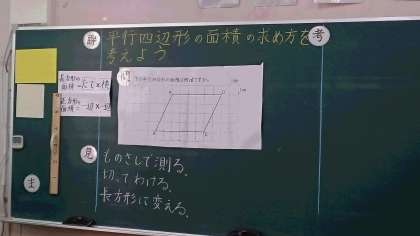 め
平行四辺形の面積の求め方を
考えよう
考
長方形の
面積=たて×横
正方形の
面積=一辺×一辺
問
見
ものさしで測る。
切ってわける。
長方形に変える。
ま